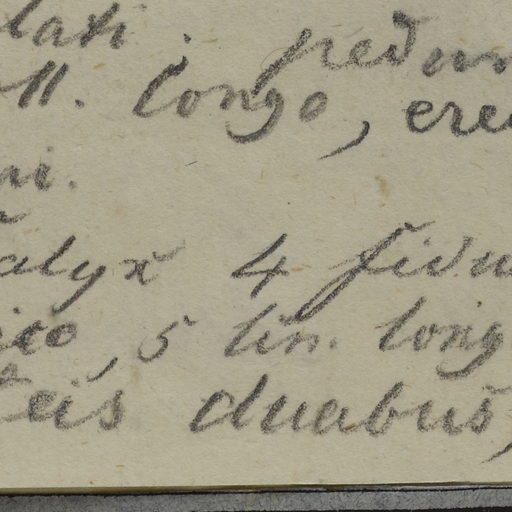 lati. pedun
ll. longo, erec
ni.
alyx 4 fidu
ico, 5 lin. long
eis duabus,